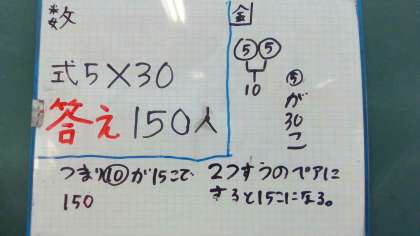 数
式5×30
答え150人
図
⑤⑤
10
⑤が30こ
つまり⑩が15こで
150
2つずつのペアに
すると15こになる。